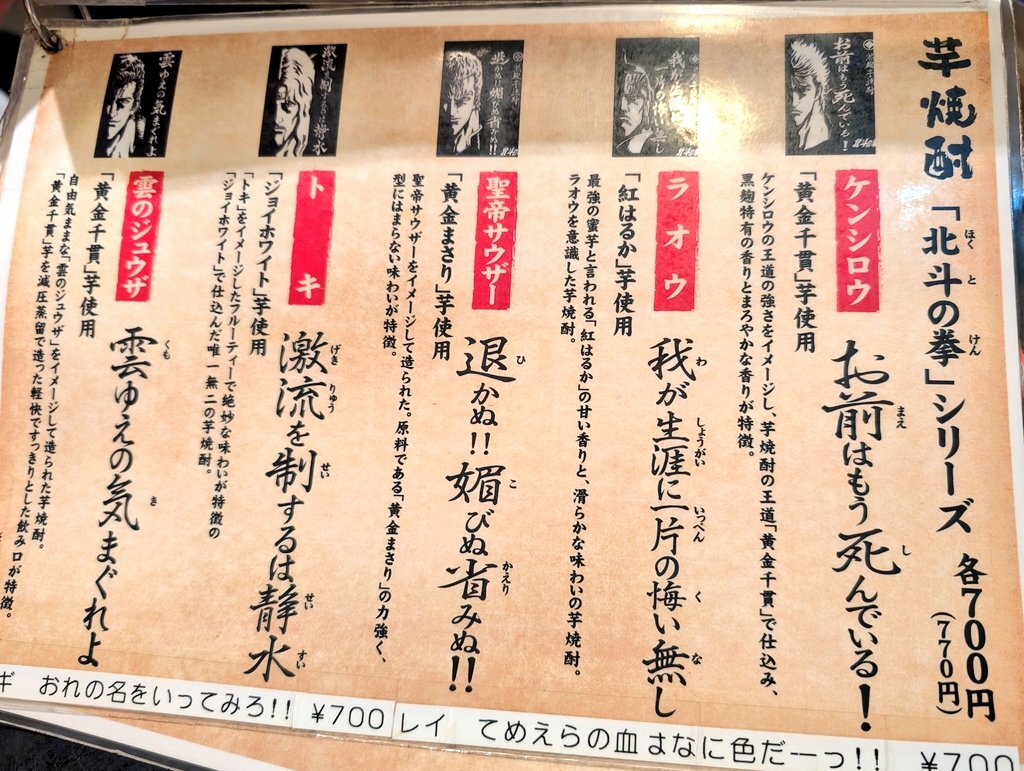 芋焼酎「北斗の拳」シリーズ 各700円
(770円)
お前はもう死んでいる!
ケンシロウ
「黄金千貫」芋使用
お前はもう死んでいる!
ケンシロウの王道の強さをイメージし、芋焼酎の王道「黄金千貫」で仕込み、
黒麹特有の香りとまろやかな香りが特徴。
ラオウ
「紅はるか」芋使用
我が生涯に一片の悔い無し
最強の蜜芋と言われる「紅はるか」の甘い香りと、滑らかな味わいの芋焼酎。
ラオウを意識した芋焼酎。
聖帝サウザー
「黄金まさり」芋使用
退かぬ!!媚びぬ省みぬ!!
聖帝サウザーをイメージして造られた。原料である「黄金まさり」の力強く、
型にはまらない味わいが特徴。
激流を制するは静水
トキ
「ジョイホワイト」芋使用
激流を制するは静水
「トキ」をイメージしたフルーティーで絶妙な味わいが特徴の
「ジョイホワイト」で仕込んだ唯一無二の芋焼酎。
雲ゆえの気まぐれよ
雲のジュウザ
「黄金千貫」芋使用
雲ゆえの気まぐれよ
自由気ままな「雲のジュウザ」をイメージして造られた芋焼酎。
「黄金千貫」芋を減圧蒸留で造った軽快ですっきりとした飲み口が特徴。
ギ おれの名をいってみろ!! ¥700
レイ てめえらの血はなに色だーっ!! ¥700